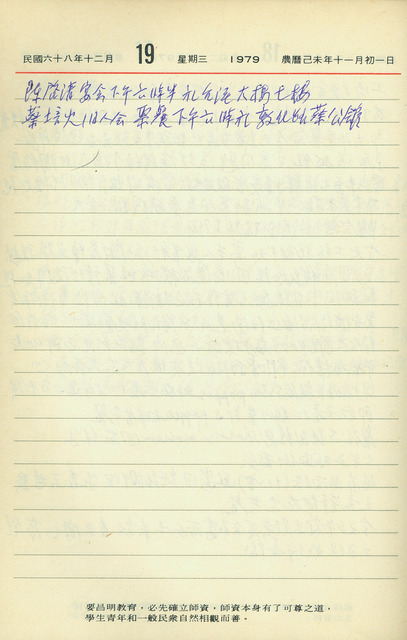 民國六十八年十二月 19 星期三 1979 農曆己未年十一月初一日
陳啓清宴会下午六時半 大樓七樓
蔡培火1日人会 聚餐下午六時於敦化路葉公館
要昌明教育，必先確立師資，師資本身有了可尊之道，
學生青年和一般民衆自然相觀而善。